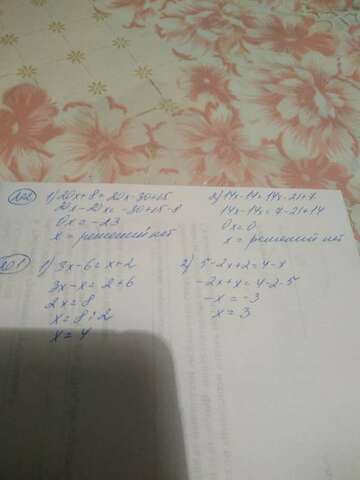 202 1) 20x+8=20x-30+15
20x-20x=-30+15-8
0x=-23
x= решений нет
2) 14x-14=14x-21+7
14x-14x=7-21+14
0x=0
x= решений нет
201 1) 3x-6=x+2
3x-x=2+6
2x=8
x=8:2
x=4
2) 5-2x+2=4-x
-2x+x=4-2-5
-x=-3
x=3